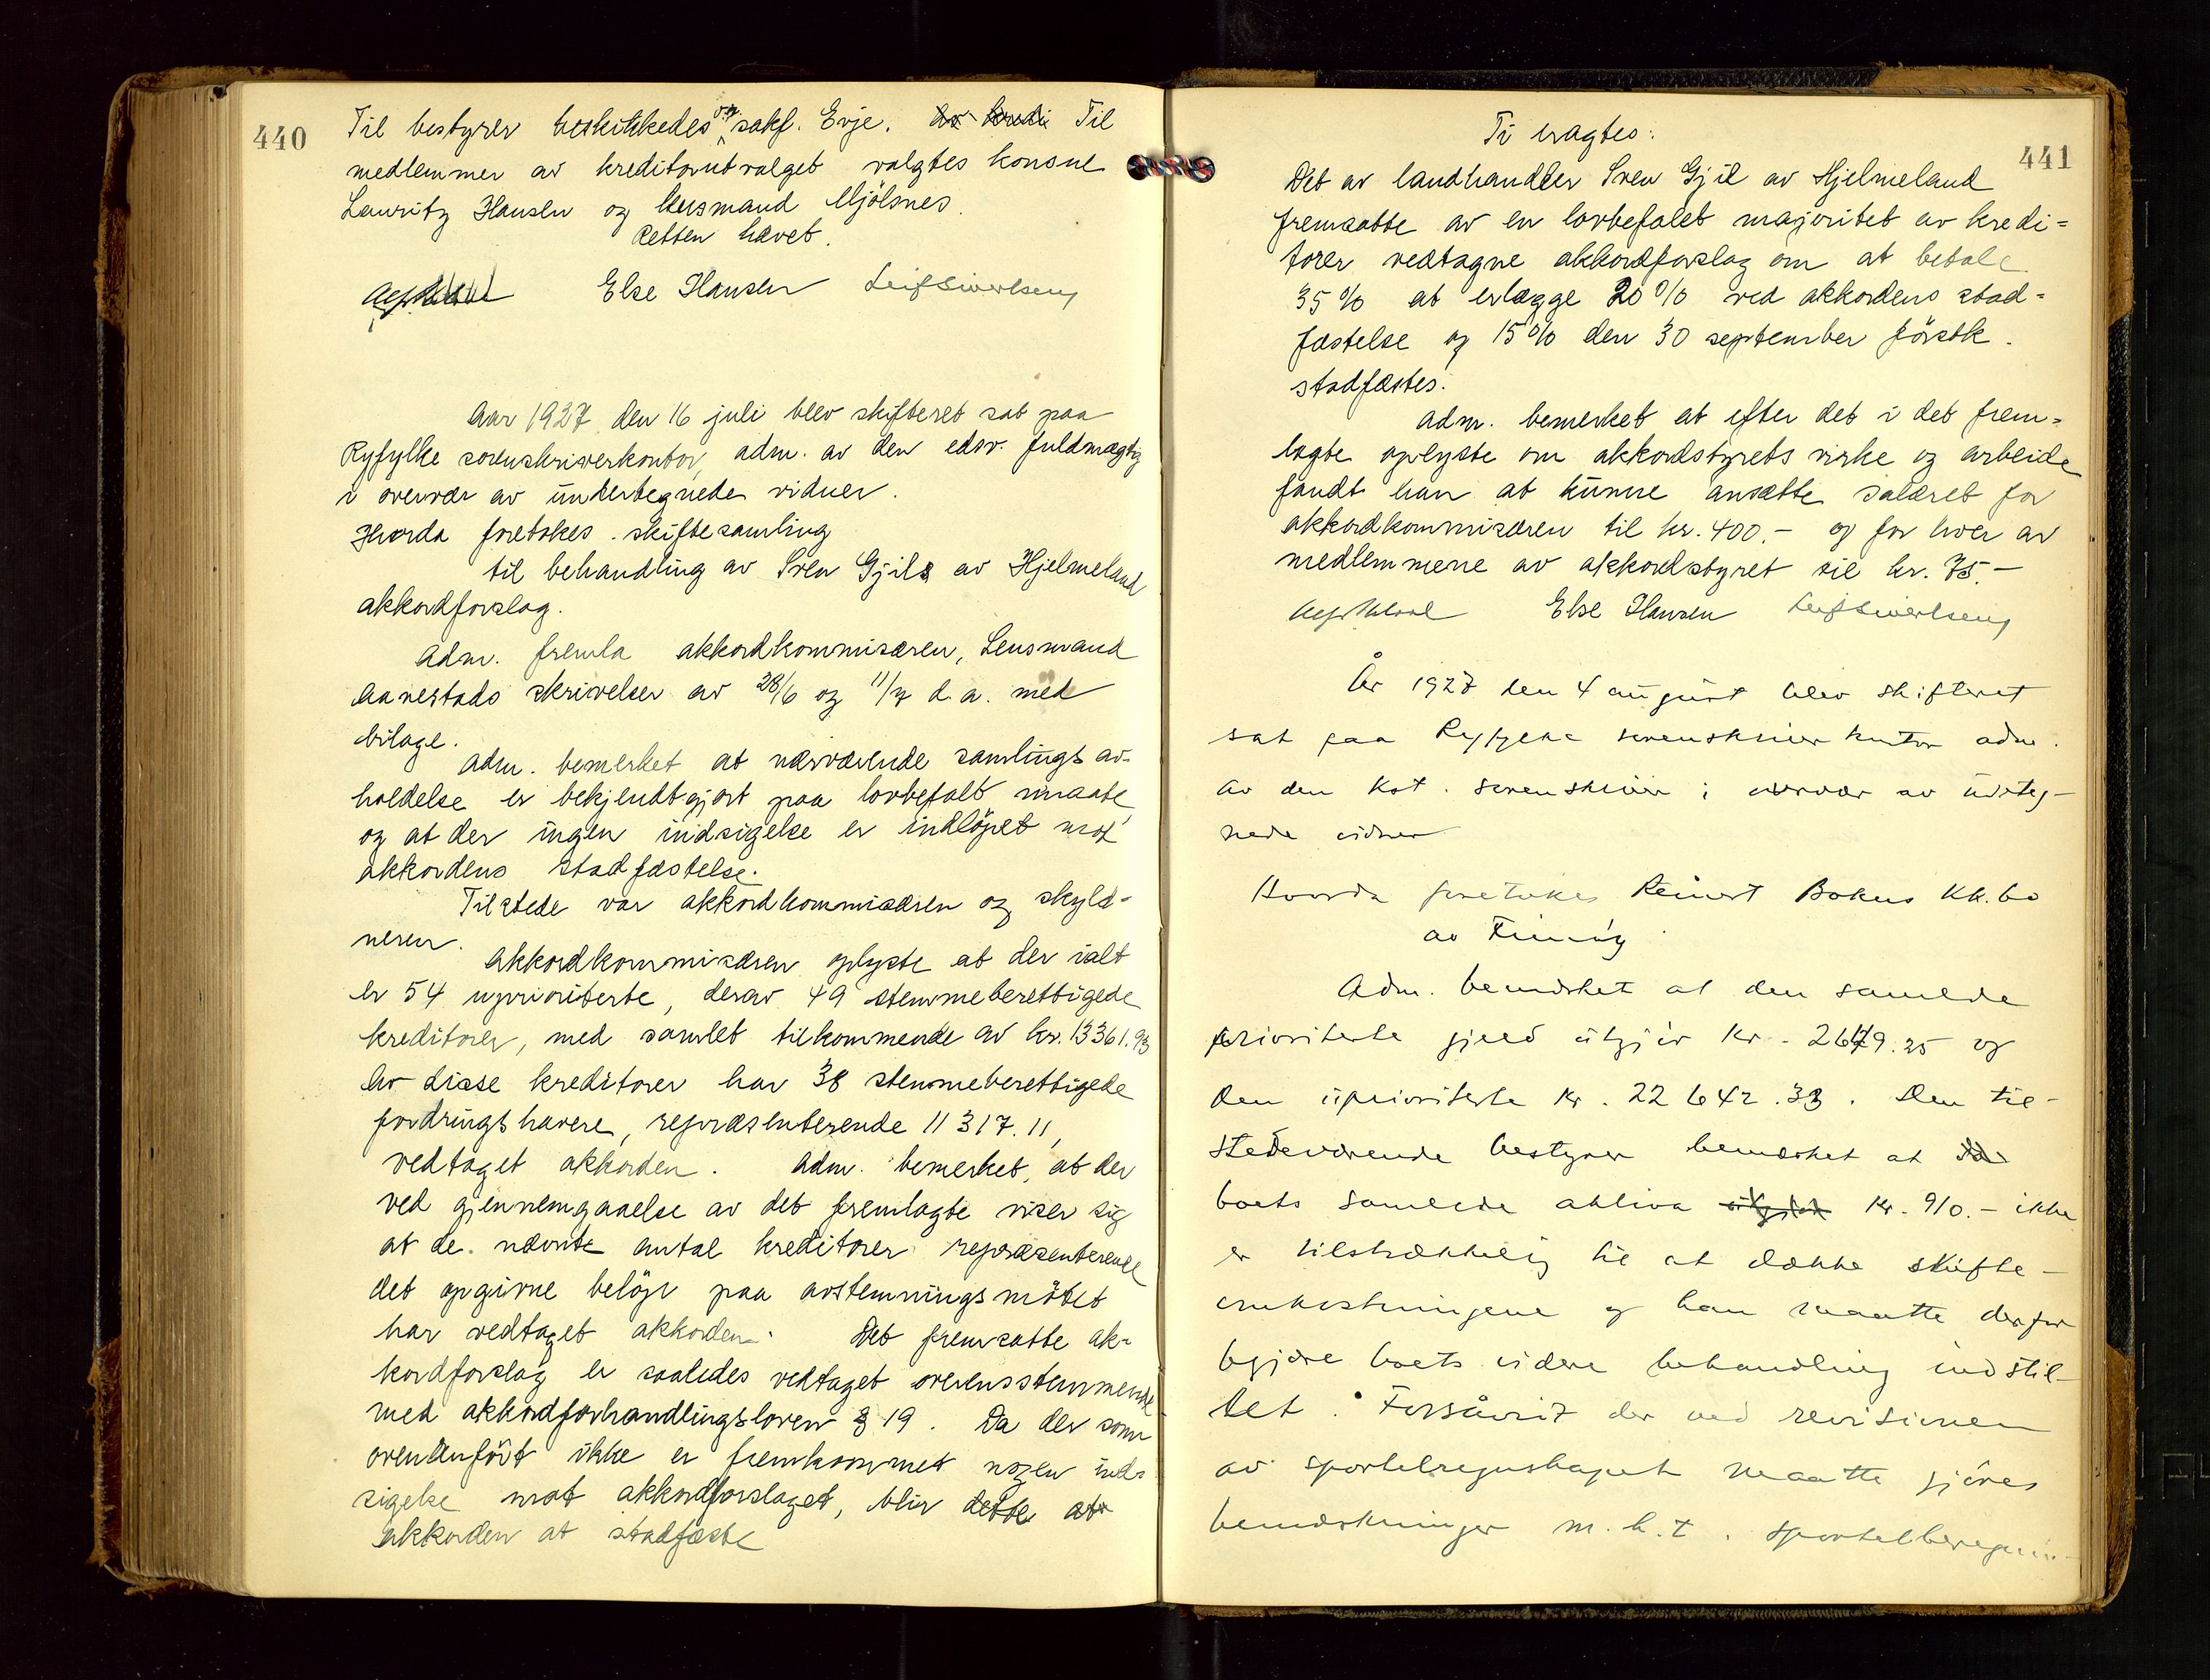 440
Til bestyrer beskikkedes o.r. sakf. Evje. Av kredi Til
medlemmer av kreditorutvalget valgtes konsul
Lauritz Hansen og lensmand Mjölsnes.
Retten hævet.
Else Hansen Leif Sivertsen
Aar 1927 den 16 juli blev skifteret sat paa
Ryfylke sorenskriverkontor, adm. av den edsv. fuldmægtig
i overvær av undertegnede vidner.
Hvorda foretokes skiftesamling
til behandling av Sven Gjils av Hjelmeland
akkordforslag.
Adm. fremla akkordkommisæren, Lensmand
Aanestads skrivelser av 28/6 og 11/7 d.a. med
bilage.
Adm. bemerket at nærværende samlings av-
holdelse er bekjendtgjort paa lovbefalt maate,
og at der ingen indsigelse er indlöpet mot
akkordens stadfæstelse.
Tilstede var akkordkommisæren og skyld-
neren.
Akkordkommisæren oplyste at der ialt
er 54 uprioriterte, derav 49 stemmeberettigede
kreditorer, med samlet tilkommende av kr. 13361.93
Av disse kreditorer har 38 stemmeberettigede
fordringshavere, repræsenterende 11317.11,
vedtaget akkorden. Adm. bemerket, at der
ved gjennemgaaelse av det fremlagte viser sig
at de nævnte antal kreditorer repræsenterende
det opgivne belöp paa avstemningsmötet
har vedtaget akkorden. Det fremsatte ak-
kordforslag er saaledes vedtaget overensstemmende
med akkordforhandlingsloven § 19. Da der som
ovenanfört ikke er fremkommet nogen ind-
sigelse mot akkordforslaget, blir dette at
akkorden at stadfæste
441
Ti eragtes:
Det av landhandler Sven Gjil av Hjelmeland
fremsatte av en lovbefalet majoritet av kredi=
torer vedtagne akkordforslag om at betale
35 % at erlægge 20 % ved akkordens stad=
fæstelse og 15 % den 30 september förstk.
stadfæstes.
Adm. bemerket at efter det i det frem=
lagte oplyste om akkordstyrets virke og arbeide
fandt han at kunne ansætte salæret for
akkordkommisæren til kr. 400.- og for hver av
medlemmene av akkordstyret til kr. 75.-
Else Hansen Leif Sivertsen
År 1927 den 4 august blev skifteret
sat paa Ryfylke sorenskriverkontor adm.
av den kst. sorenskriver i overvær av underteg-
nede vidner
Hvorda foretokes Reinert Bokns kk.bo
av Finnöy
Adm. bemerket at den samlede
prioriterte gjeld utgjör kr. 2679.25 og
den uprioriterte kr. 22642.33. Den til-
stedeværende bestyrer bemerket at da
boets samlede aktiva utgjör kr. 910.- ikke
er tilstrækkelig til at dække skifte-
omkostningene og han maatte derfor
begjære boets videre behandling indstil-
let. Forsåvidt der ved revisionen
av sportelregnskapet maatte gjöres
bemerkninger m.h.t. sportelberegnin-